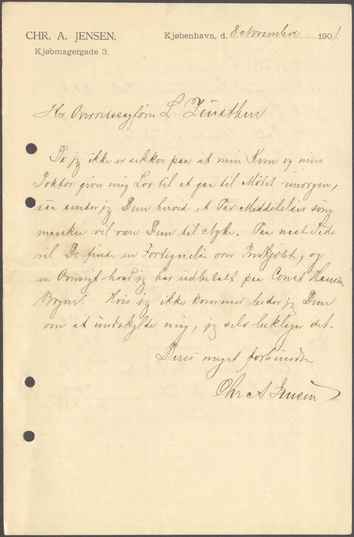 CHR. A. JENSEN.
Kjøbmagergade 3.
Kjøbenhavn, d. 8 November 1901
Hr. Overretssagfører L. Zeuthen
Da jeg ikke er sikker paa at min Kone og min
Doktor giver mig Lov til at gaa til Mødet imorgen,
saa sender jeg Dem herved et Par Meddelelser som
vil være Dem til
vil De finde en Fortegnelse over og
en Oversigt hvad jeg har udbetalt paa
Hvis jeg ikke kommer beder jeg Dem
om at undskylde mig, jeg selv beklager det.
Deres meget forbundne
Chr. A. Jensen